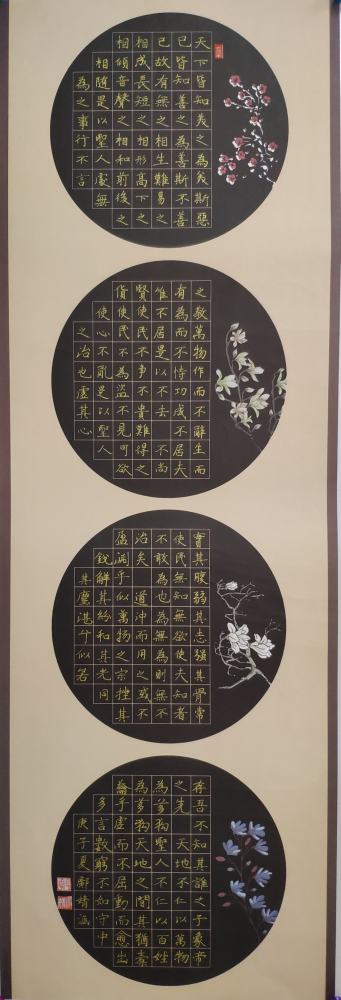 天下皆知美之為美斯惡
已皆知善之為善斯不善
已故有無之相生難易之
相成長短之相形高下之
相傾音聲之相和前後之
相隨是以聖人處無
為之事行不言
之教萬物作而不辭生而
有為而不恃功成不居夫
惟不居是以不去 不尚
賢使民不爭不貴難得之
貨使民不為盜不見可欲
使心不亂是以聖人
之治也虛其心
實其腹弱其志強其骨常
使民無知無欲使夫知者
不敢為也為無為則無不
治矣 道沖而用之或不
盈淵乎似萬物之宗挫其
銳解其紛和其光同
其塵湛兮似若
存吾不知其誰之子象帝
之先 天地不仁以萬物
為芻狗聖人不仁以百姓
為芻狗天地之間其猶橐
籥乎虛而不屈動而愈出
多言數窮不如守中
庚子夏鄺靖涵